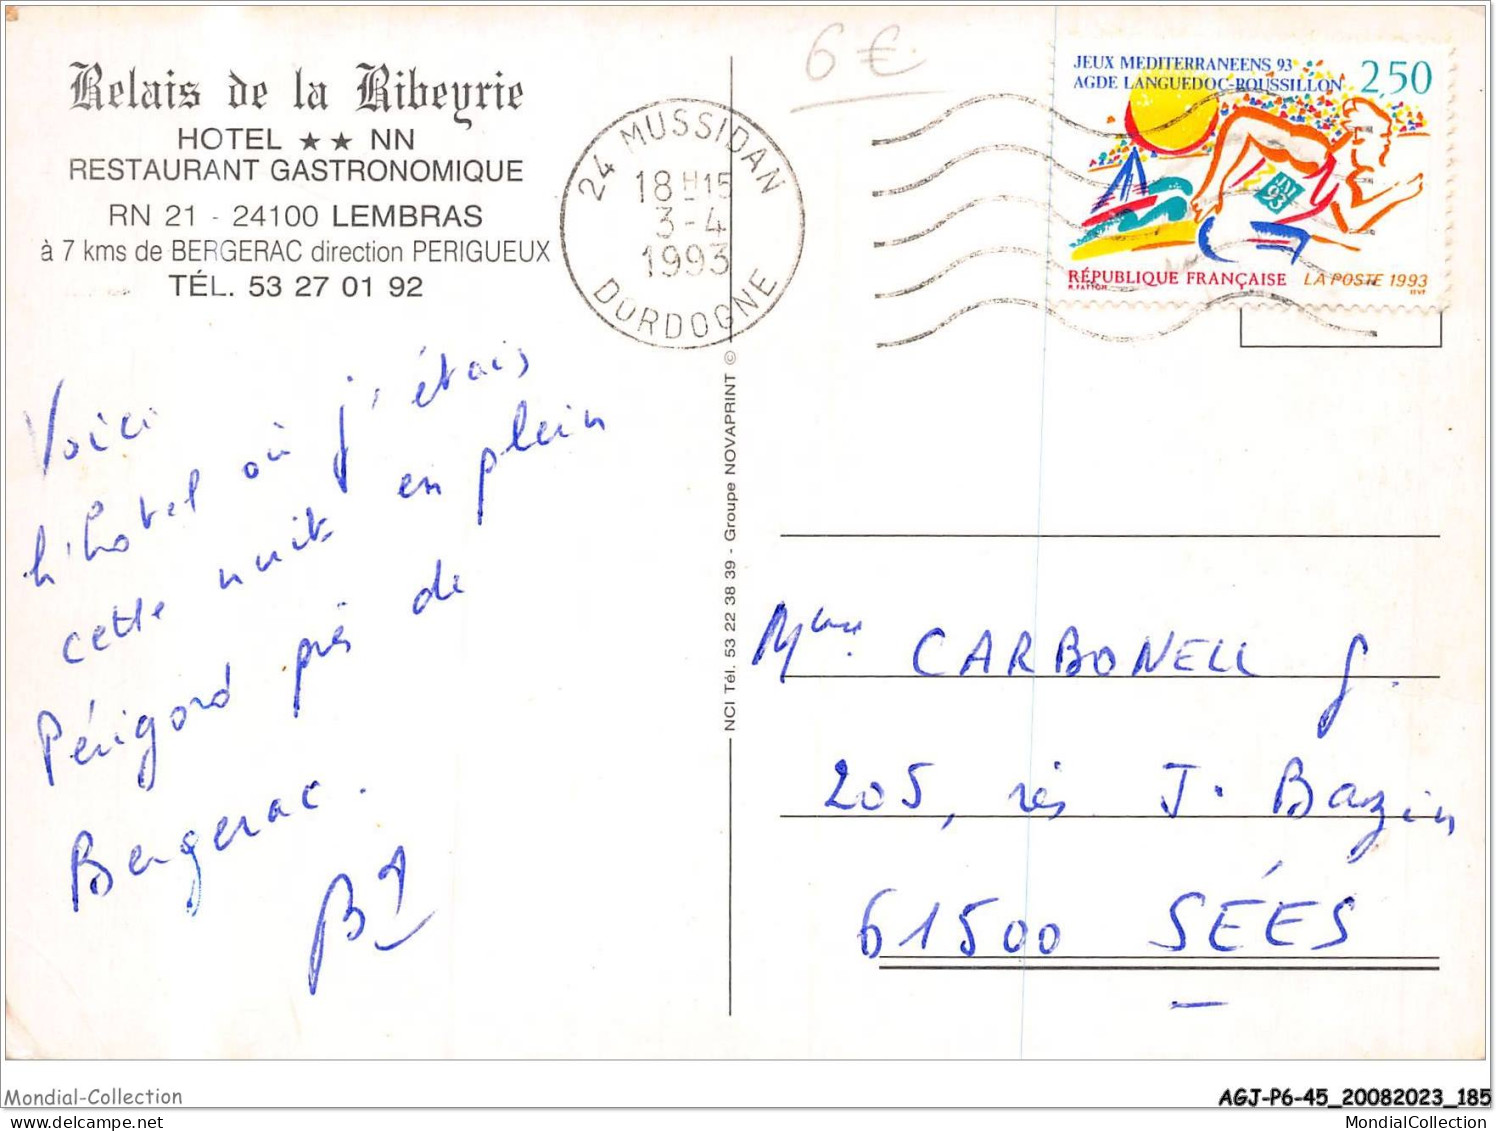 Relais de la Ribeyrie
HOTEL ★★ NN
RESTAURANT GASTRONOMIQUE
RN 21 - 24100 LEMBRAS
à 7 kms de BERGERAC direction PERIGUEUX
TÉL. 53 27 01 92
6 €
24 MUSSIDAN
18 H 15
3-4
1993
DORDOGNE
JEUX MEDITERRANEENS 93
AGDE LANGUEDOC-ROUSSILLON
2,50
93
RÉPUBLIQUE FRANÇAISE
LA POSTE 1993
Voici
l'hotel où j'étais
cette nuit en plein
Périgord près de
Bergerac.
NCI Tél. 53 22 38 39 - Groupe NOVAPRINT ©
Mme CARBONELL J.
205, rés J. Bazin
61500 SÉES
Mondial-Collection
AGJ-P6-45_20082023_185
MondialCollection